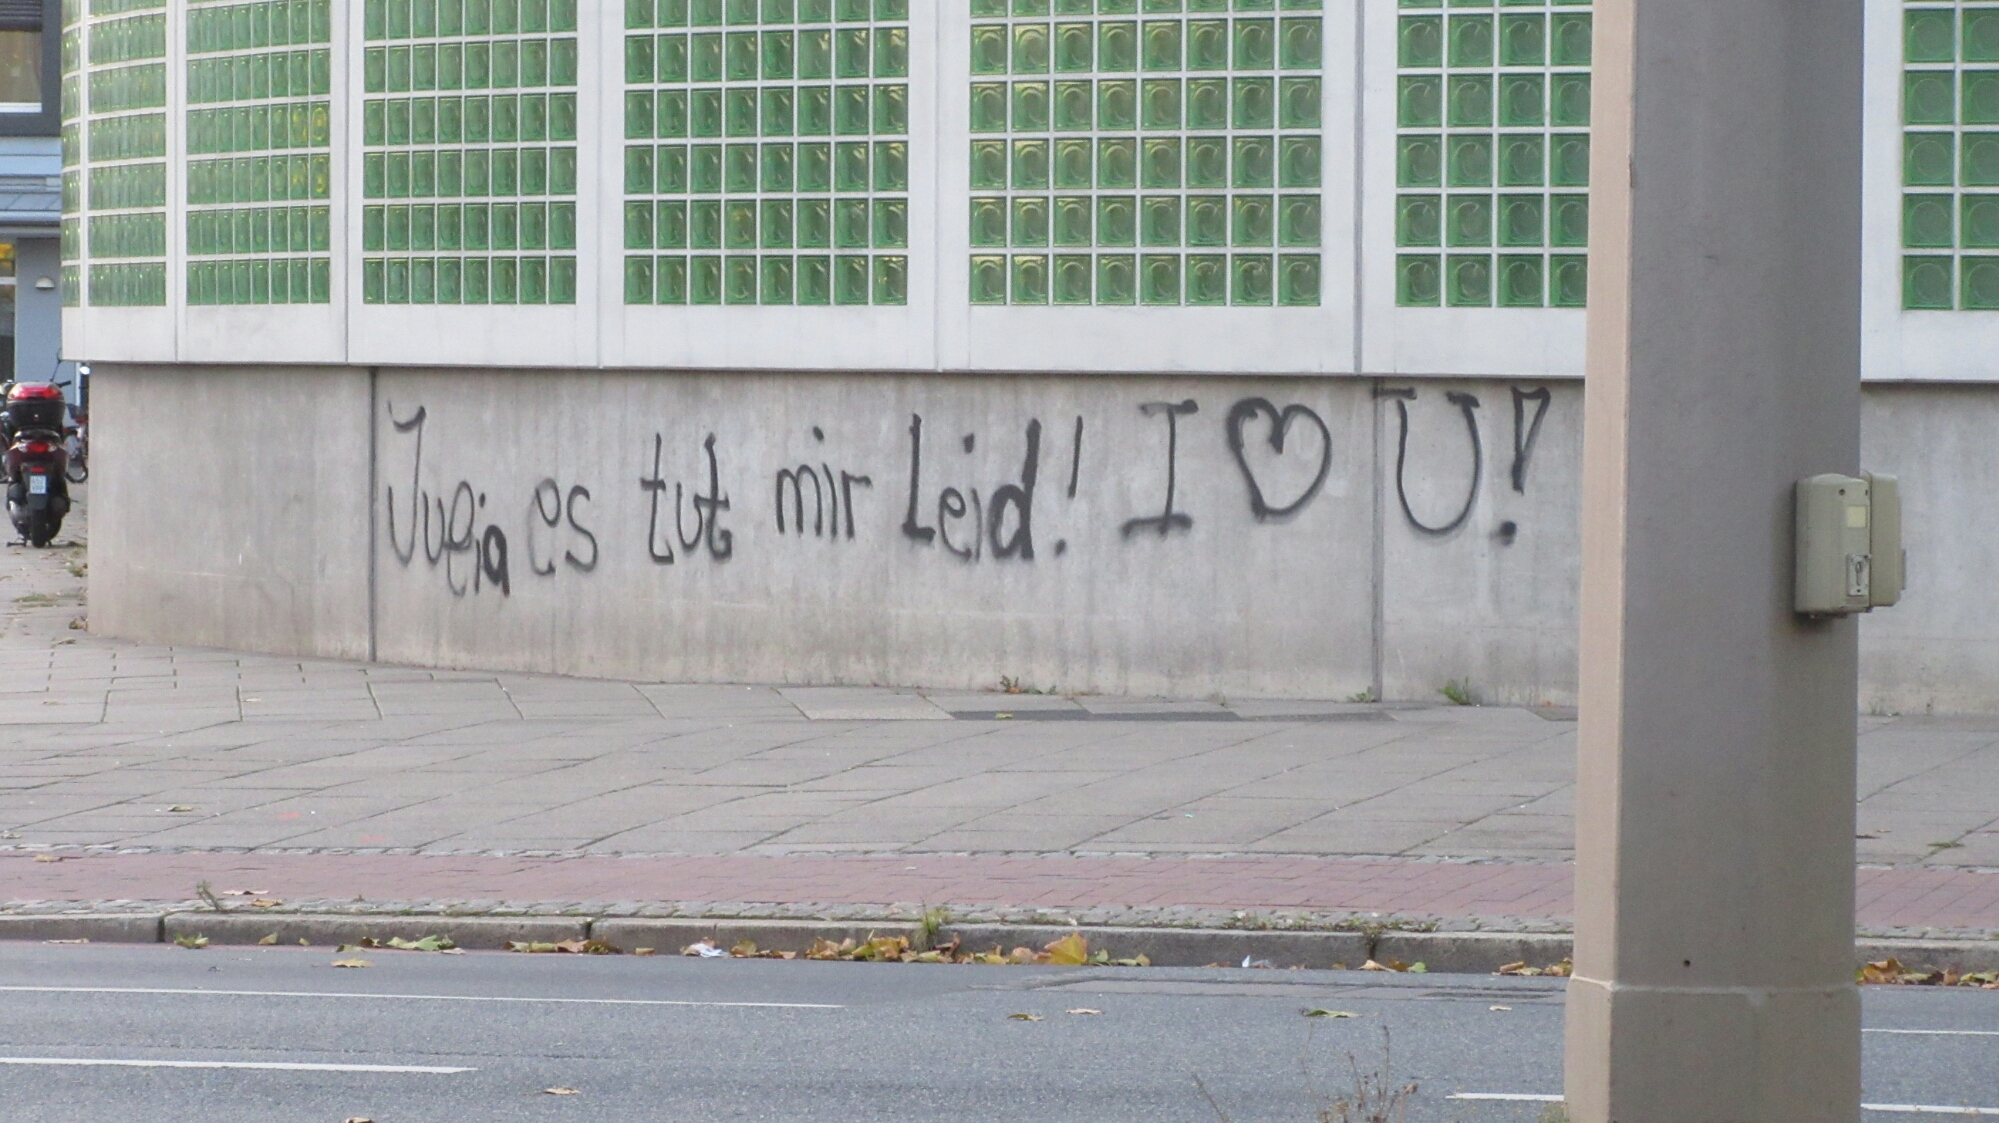 Julia es tut mir Leid! I ♡ U!